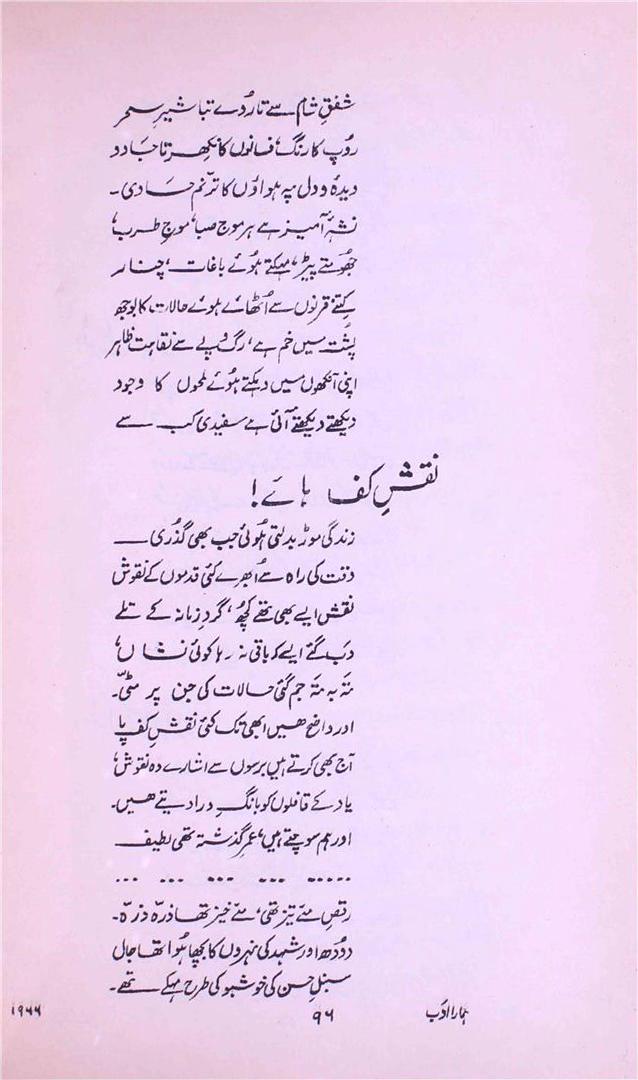 شفقِ شام سے تار دے تباشیرِ سحر
رُوپ کا رنگ، فسانوں کا نکھرتا جادو
دیدہ و دل پہ ہواؤں کا ترنم حادی۔
نشہ آمیز ہے ہر موج صبا، موجِ طرب،
جھومتے پیڑ، مہکتے ہوئے باغات، چنار
کتنے قرنوں سے اُٹھائے ہوئے حالات کا بوجھ
پشت میں خم ہے، رگ و پے سے نقاہت ظاہر
اپنی آنکھوں میں دہکتے ہوئے لمحوں کا وجود
دیکھتے دیکھتے آئی ہے سفیدی کب سے
نقشِ کف ہائے!
زندگی موڑ بدلتی ہوئی جب بھی گذُری —
وقت کی راہ سے اُبھرے کئی قدموں کے نقوش
نقش ایسے بھی تھے کچھ، گردِ زمانہ کے تلے
دب گئے ایسے کہ باقی نہ رہا کوئی نشاں،
تہ بہ تہ جم گئی حالات کی جن پر مٹّی۔
اور واضح ھیں ابھی تک کئی نقشِ کفِ پا
آج بھی کرتے ہیں برسوں سے اشارے وہ نقوش،
یاد کے قافلوں کو بانگِ درا دیتے ھیں۔
اور ہم سوچتے ہیں، عمرِ گذشتہ تھی لطیف
... ... ... ... .....
رقصِ مے تیز تھی، مے خیز تھا ذرّہ ذرّہ۔
دودھ اور شہد کی نہروں کا بچھا ہوا تھا جال
سنبلِ حسن کی خوشبو کی طرح مہکے تھے۔
ہمارا ادب
۹۶
۱۹۶۶